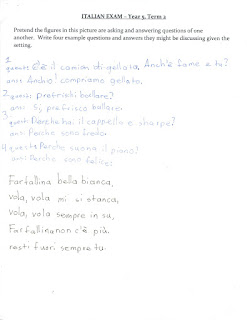 ITALIAN EXAM – Year 5, Term 2
Pretend the figures in this picture are asking and answering questions of one
another. Write four example questions and answers they might be discussing given the
setting.
1
quest: C'è il camion di gellato, Anch'è fame e tu?
ans: Anchio! compriamo gellato.
2 quest: Prefriski ballare?
ans: Si, prefrisco ballare.
3 quest: Perche hai il cappello e sharpe?
ans: Perche sono freda.
4 quest: Perche suona il piano?
ans: Perche sono felice.
Farfallina bella bianca,
vola, vola mi si stanca,
vola, vola sempre in su,
Farfallina non c'è più.
resti fuori sempre tu.